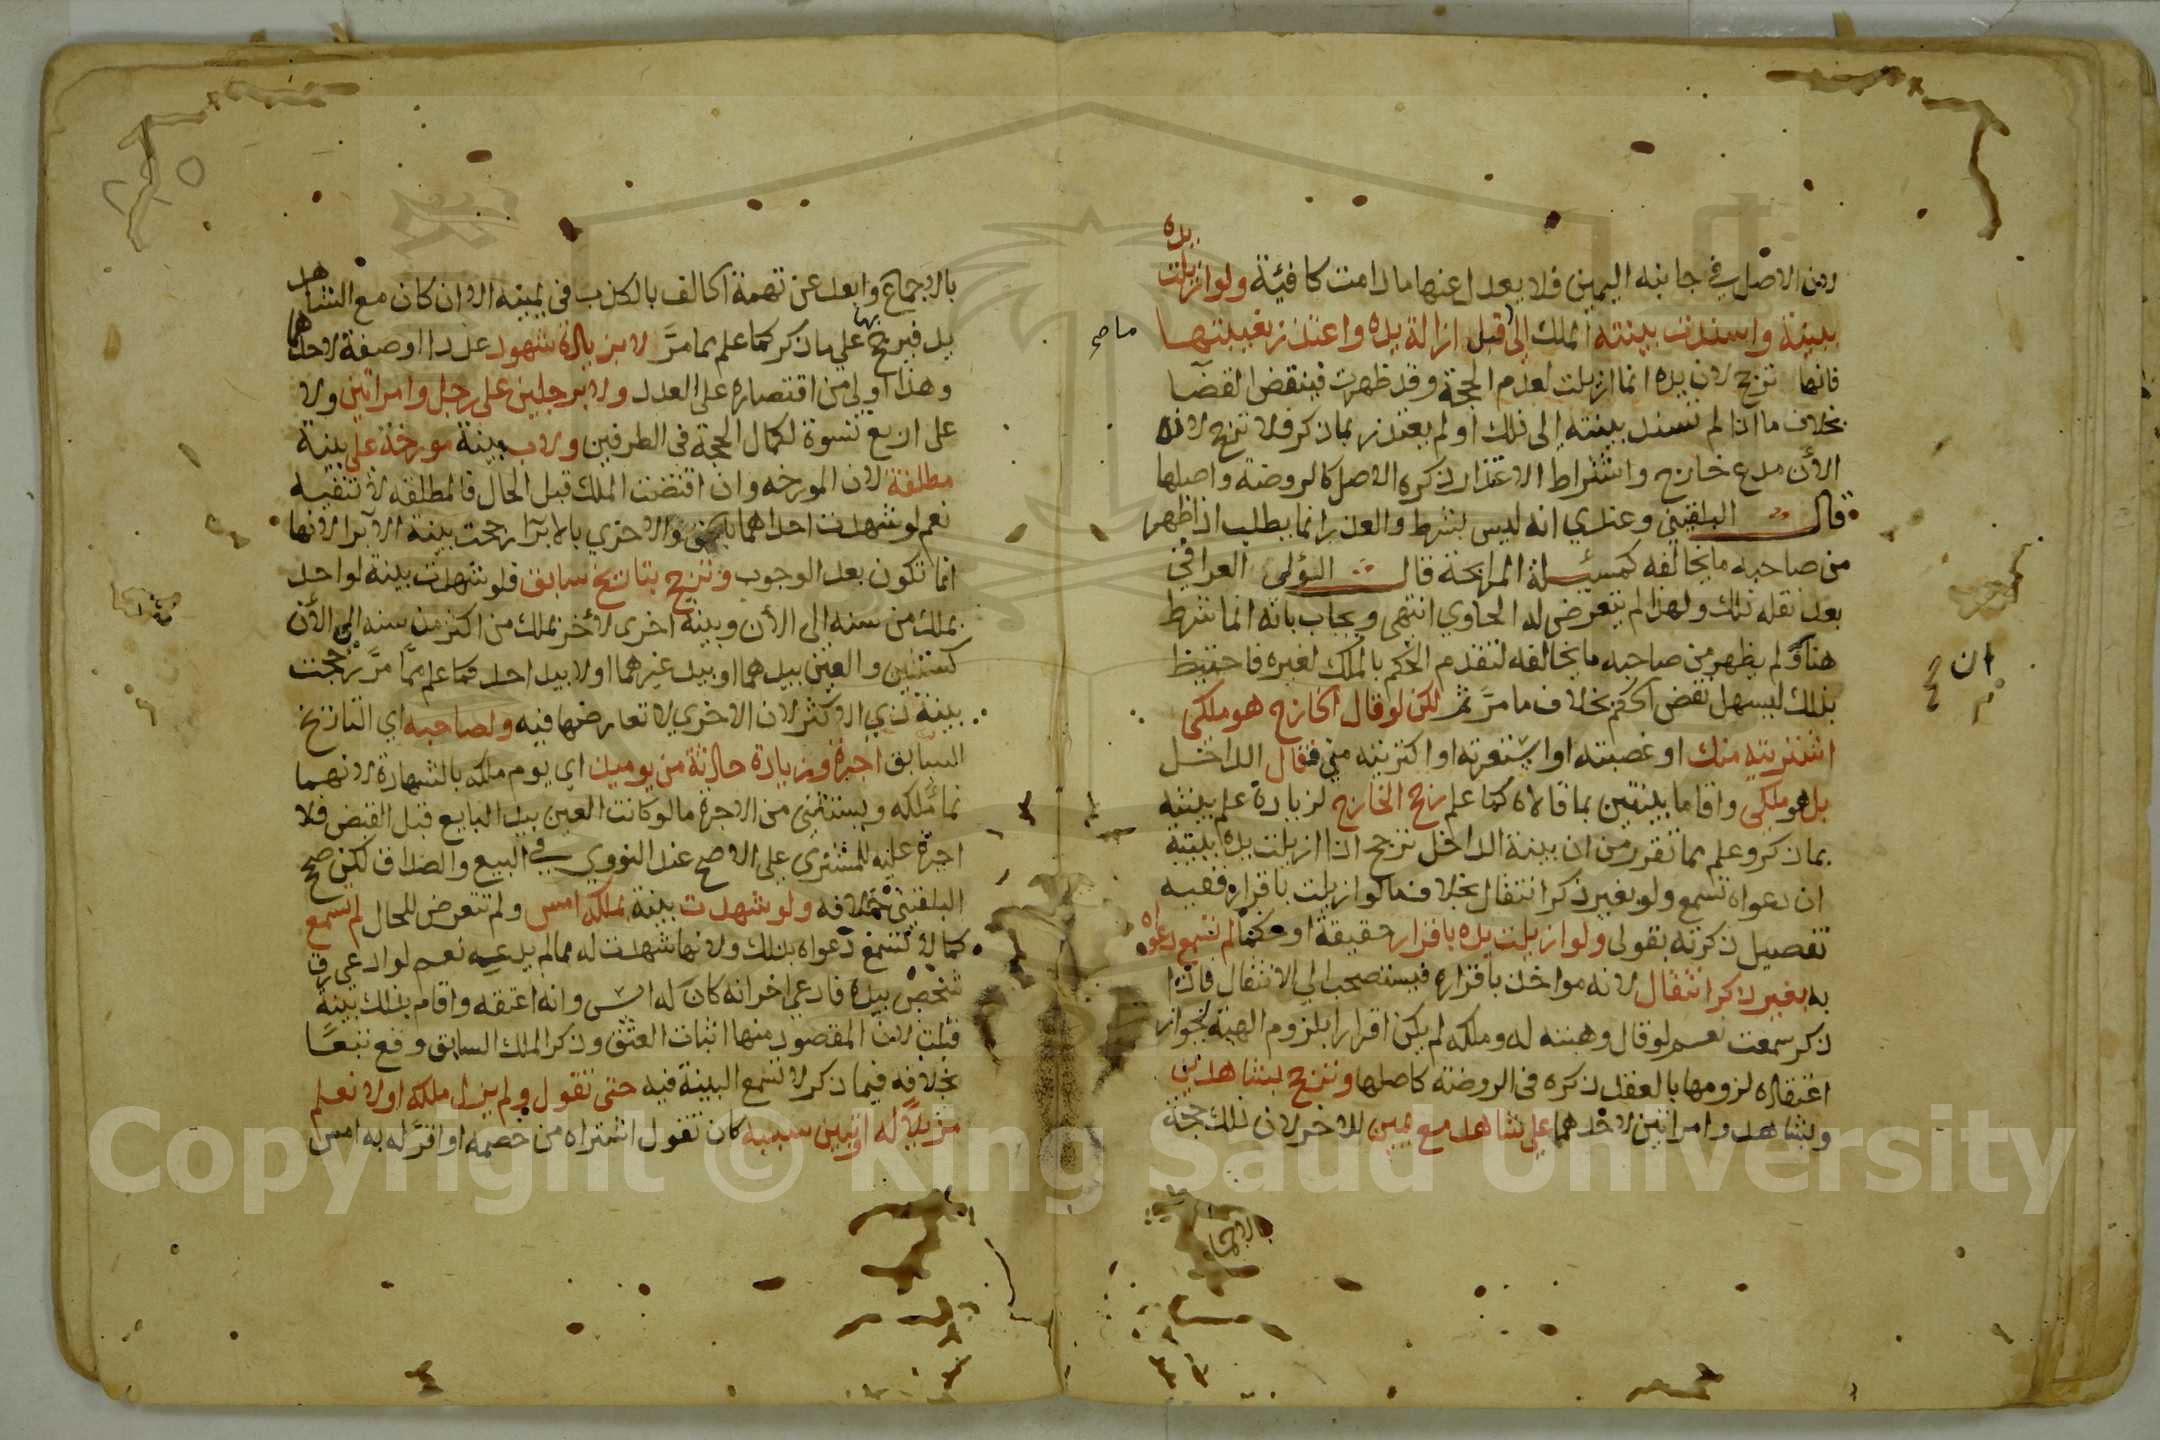 لان الاصل في جانبه اليمين فلا يعدل عنها مادامت كافية ولو ازيلت يده
ببينة واسندت بينته الملك الى قبل ازالة يده واعتذر بغيبتها
فانها ترجح لان يده انما ازيلت لعدم الحجة وقد ظهرت فينقض القضا
بخلاف ما اذا لم تسند بينته الى ذلك او لم يعتذر بما ذكر فلا ترجح لانه
الآن مدع خارج واشتراط الاعتذار ذكره الاصل كالروضة واصلها
قال البلقيني وعندي انه ليس بشرط والعذر انما يطلب اذا ظهر
من صاحبه ما يخالفه كمسئلة المرابحة قال الولي العراقي
بعد نقله ذلك ولهذا لم يتعرض له الحاوي انتهى ويجاب بانه انما شرط
هنا ولم يظهر من صاحبه ما يخالفه لتقدم الحكم بالملك لغيره فاحتيط
بذلك ليسهل نقض الحكم بخلاف ما مر ثم لكن لو قال الخارج هو ملكي
اشتريته منك او غصبته او استعرته او اكتريته مني فقال الداخل
بل هو ملكي واقاما بينتين بما قالاه كما علم رجح الخارج لزيادة علم بينته
بما ذكر وعلم مما تقرر من ان بينة الداخل ترجح اذا ازيلت يده ببينة
ان دعواه تسمع ولو بغير ذكر انتقال بخلاف ما لو ازيلت باقراره ففيه
تفصيل ذكرته بقولي ولو ازيلت يده باقرار حقيقة او حكما لم تسمع دعواه
به بغير ذكر انتقال لانه مواخذ باقراره فيستصحب الى الانتقال فاذا
ذكر سمعت نعم لو قال وهبته له وملكه لم يكن اقرارا بلزوم الهبة لجواز
اعتقاده لزومها بالعقد ذكره في الروضة كاصلها وترجح بشاهدين
وبشاهد وامراتين لاحدهما على شاهد مع يمين للاخر لان ذلك حجة
بالاجماع وابعد عن تهمة الحالف بالكذب في يمينه الا ان كان مع الشاهد
يد فيرجح بها على ما ذكر كما علم مما مر لا بزيادة شهود عددا او صفة لاحدهما
وهذا اولى من اقتصاره على العدد ولا برجلين على رجل وامراتين ولا
على اربع نسوة لكمال الحجة في الطرفين ولا ببينة مورخة على بينة
مطلقة لان المورخه وان اقتضت الملك قبل الحال فالمطلقه لا تنفيه
نعم لو شهدت احداهما بالحق والاخرى بالابرا رجحت بينة الابرا لانها
انما تكون بعد الوجوب وترجح بتاريخ سابق فلو شهدت بينة لواحد
بملك من سنه الى الآن وبينة اخرى لاخر بملك من اكثر من سنه الى الآن
كسنتين والعين بيدهما او بيد غيرهما اولا بيد احد كما علم مما مر رجحت
بينة ذي الاكثر لان الاخرى لا تعارضها فيه ولصاحبه اي التاريخ
السابق اجرة وزيادة حادثة من يومئذ اي يوم ملكه بالشهادة لانهما
نما ملكه ويستثنى من الاجرة ما لو كانت العين بيد البايع قبل القبض فلا
اجرة عليه للمشتري على الاصح عند النووي في البيع والصداق لكن صحح
البلقيني خلافه ولو شهدت بينة بملكه امس ولم تتعرض للحال لم تسمع
كما لا تسمع دعواه بذلك ولانها شهدت له بما لم يدعيه نعم لو ادعى رق
شخص بيده فادعى اخر انه كان له امس وانه اعتقه واقام بذلك بينة
قبلت لان المقصود منها اثبات العتق وذكر الملك السابق وقع تبعا
بخلافه فيما ذكر لا تسمع البينة فيه حتى تقول ولم يزل ملكه او لا نعلم
مزيلا له او تبين سببه كان تقول اشتراه من خصمه او اقر له به امس
بالاجماع
Copyright © King Saud University